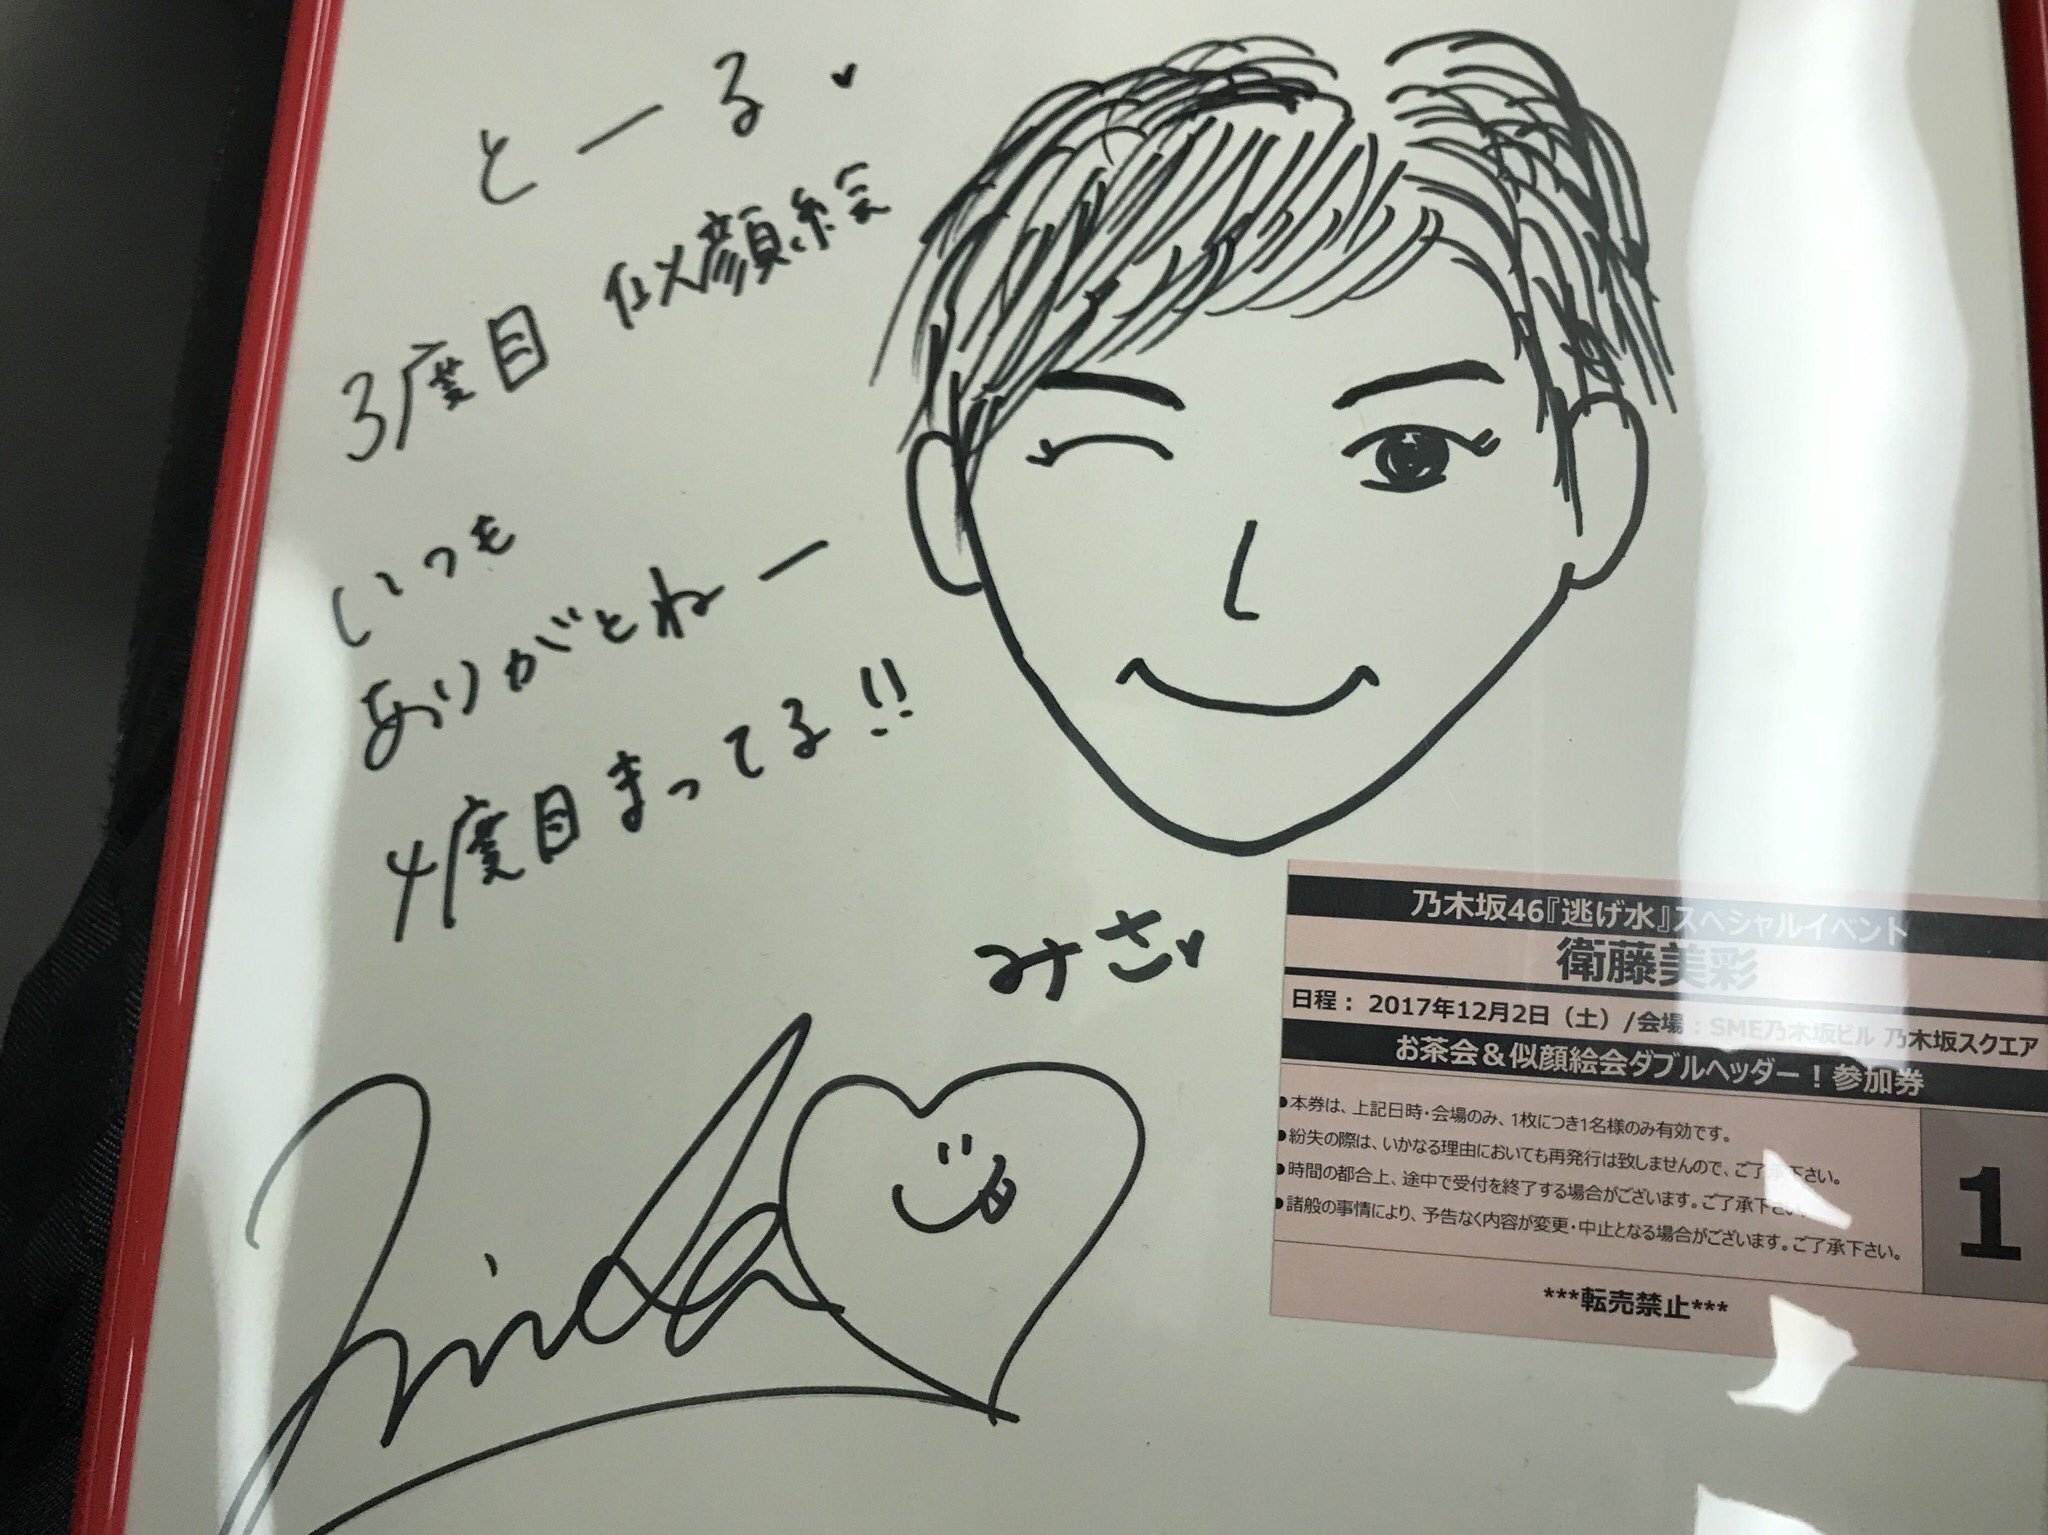 とーる♥
3度目 似顔絵
いつも
ありがとねー
4度目まってる!!
みさ♥
乃木坂46『逃げ水』スペシャルイベント
衛藤美彩
日程： 2017年12月2日（土）/会場：SME乃木坂ビル 乃木坂スクエア
お茶会＆似顔絵会ダブルヘッダー！参加券
●本券は、上記日時・会場のみ、1枚につき1名様のみ有効です。
●紛失の際は、いかなる理由においても再発行は致しませんので、ご了承下さい。
●時間の都合上、途中で受付を終了する場合がございます。ご了承下さい。
●諸般の事情により、予告なく内容が変更・中止となる場合がございます。ご了承下さい。
1
***転売禁止***